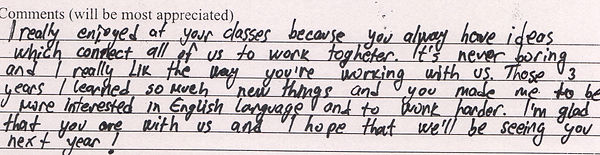 Comments (will be most appreciated)
I really enjoyed at your classes because you alway have ideas
which conect all of us to work togheter. It's never boring
and I really lik the way you're working with us. Those 3
years I learned so much new things and you made me to be
more interested in English language and to work harder. I'm glad
that you are with us and I hope that we'll be seeing you
next year!